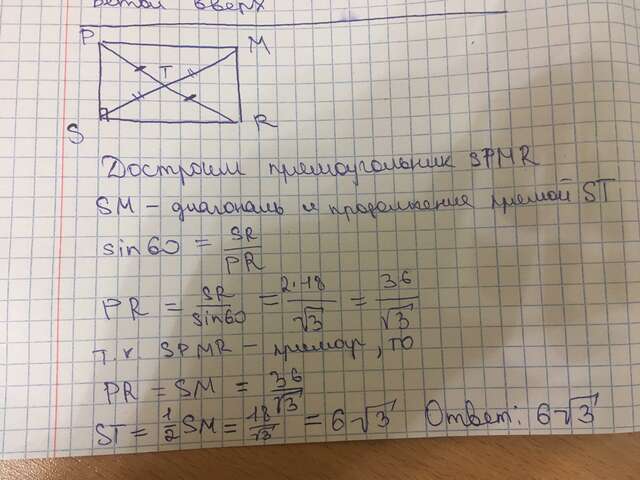 ветой вверх
P
M
T
S
R
Достроим прямоугольник SPMR
SM - диагональ и продолжение прямой ST
sin60 = SR/PR
PR = SR/sin60 = 2·18/√3 = 36/√3
т.к. SPMR - прямоуг, то
PR = SM = 36/√3
ST = 1/2 SM = 18/√3 = 6√3 Ответ: 6√3